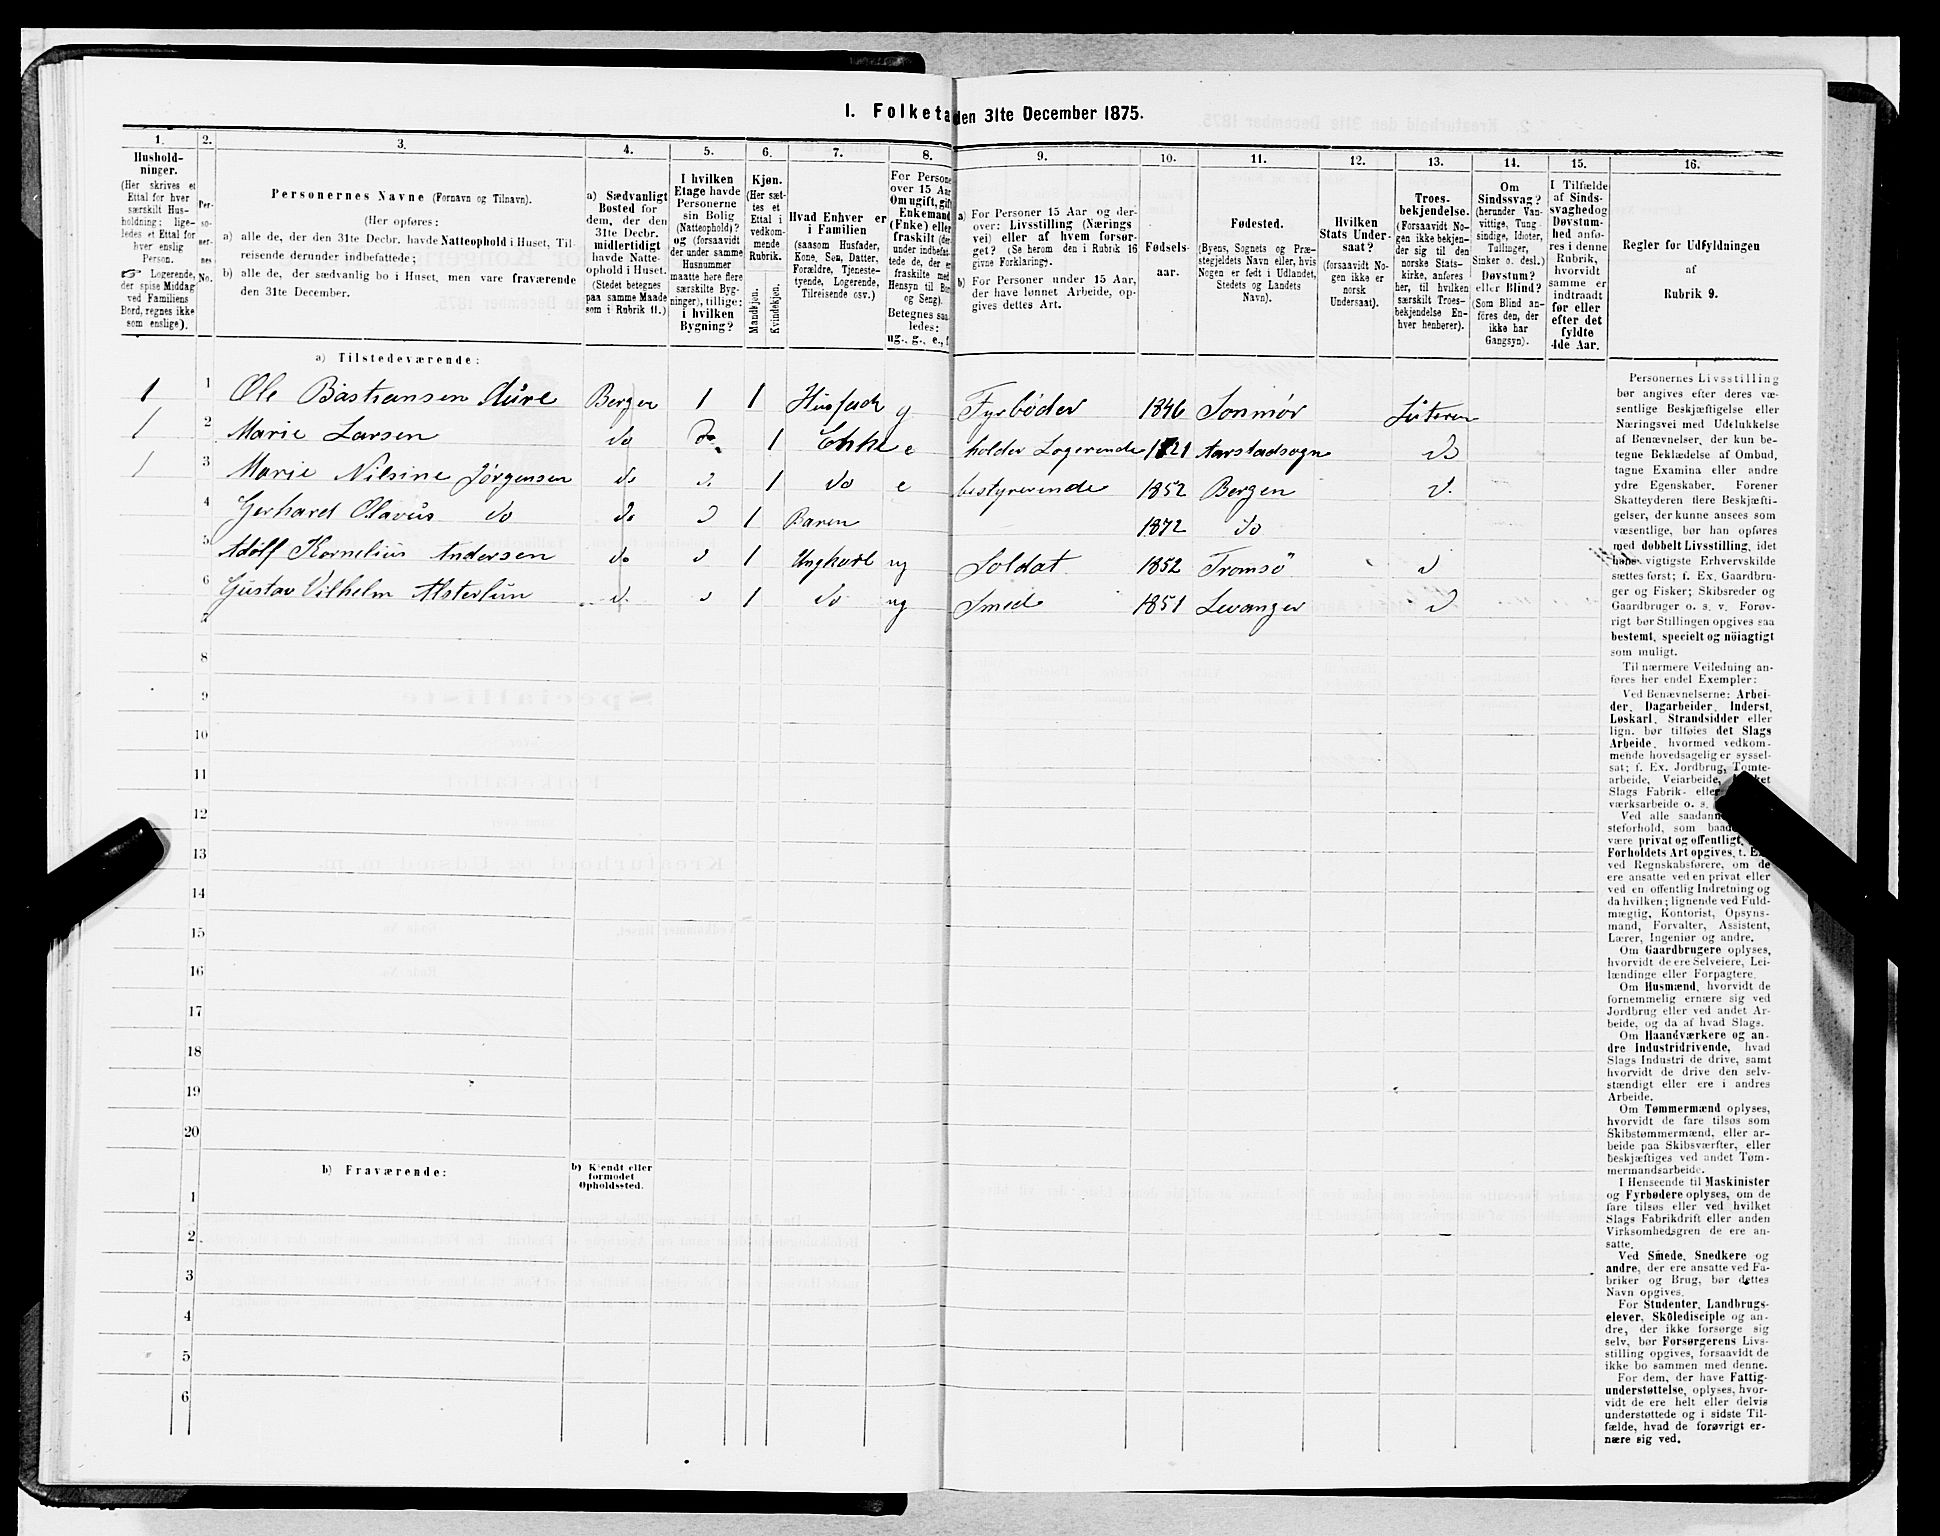 I. Folketa den 31te December 1875.
1. 2. 3. 4. 5. 6. 7. 8. 9. 10. 11. 12. 13. 14. 15. 16.
Hushold-
ninger.
(Her skrives et
Ettal for hver
særskilt Hus-
holdning; lige-
ledes et Ettal for
hver enslig
Person.
☞ Logerende,
der spise Middag
ved Familiens
Bord, regnes ikke
som enslige).
Per-
so-
ner-
nes
No.
Personernes Navne (Fornavn og Tilnavn).
(Her opføres:
a) alle de, der den 31te Decbr. havde Natteophold i Huset, Til-
reisende derunder indbefattede;
b) alle de, der sædvanlig bo i Huset, men vare fraværende
den 31te December.
a) Sædvanligt
Bosted for
dem, der den
31te Decbr.
midlertidigt
havde Natte-
ophold i Huset.
(Stedet betegnes
paa samme Maade
som i Rubrik 11.)
I hvilken
Etage havde
Personerne
sin Bolig
(Natteophold)?
og (forsaavidt
der under samme
Husnummer
maatte here flere
særskilte Byg-
ninger), tillige:
i hvilken
Bygning?
Kjøn.
(Her sæt-
tes et
Ettal i
vedkom-
mende
Rubrik.
Mandkjøn.
Kvindekjøn.
Hvad Enhver er
i Familien
(saasom Husfader,
Kone, Søn, Datter,
Forældre, Tjeneste-
tyende, Logerende,
Tilreisende osv.)
For Persone
over 15 Aar
Om ugift, gift
Enkemand
(Enke) eller
fraskilt (der
under indbefat-
tede de, der er
fraskilte med
Hensyn til Bor
og Seng).
Betegnes saa
ledes:
ug., g., e., f.
a) For Personer 15 Aar og der-
over: Livsstilling (Nærings
vei) eller af hvem forsør-
get? (Se herom den i Rubrik 16
givne Forklaring).
b) For Personer under 15 Aar,
der have lønnet Arbeide, op-
gives dettes Art.
Fødsels-
aar.
Fødested.
(Byens, Sognets og Præ-
stegjeldets Navn eller, hvis
Nogen er født i Udlandet,
Stedets og Landets
Navn).
Hvilken
Stats Under-
saat?
(forsaavidt No-
gen ikke er
norsk
Undersaat).
Troes-
bekjendelse.
(Forsaavidt No-
gen ikke bekjen-
der sig til den
norske Stats-
kirke, anføres
her, til hvilken
særskilt Troes-
bekjendelse En-
hver henhører).
Om
Sindssvag?
(herunder Van-
vittige, Tung-
sindige, Idioter,
Tullinger,
Sinker o. desl.)
Døvstum?
eller Blind?
(Som Blind an-
føres den, der
ikke har
Gangsyn).
I Tilfælde
af Sinds-
svaghed og
Døvstum-
hed anfø-
res i denne
Rubrik,
hvorvidt
samme er
indtraadt
før eller
efter det
fyldte
4de Aar.
Regler før Udfyldningen
af
Rubrik 9.
a) Tilstedeværende:
1 1 Ole Bastiansen Aure Bergen 1 1 Husfader g Fyrbøder 1846 Sønmør Luteran
1 2 Marie Larsen do do 1 Enke e holder Logerende 1821 Aarstadsogn do
1 3 Marie Nilsine Jørgensen do d 1 do e bestyrerende 1852 Bergen d.
4 Gerhard Olavus do do d 1 Baren 1872 do
5 Adolf Kornelius Andersen do d 1 Ungkarl ug Soldat 1852 Tromsö d
6 Gustav Vilhelm Alsterlun d. d 1 do ug Smed 1851 Levanger d
7
8
9
10
11
12
13
14
15
16
17
18
19
20
b) Fraværende:
b) Kjendt eller
formodet
Opholdssted.
1
2
3
4
5
6
Personernes Livsstilling
bør angives efter deres væ-
sentlige Beskjæftigelse eller
Næringsvei med Udelukkelse
af Benævnelser, der kun be-
tegne Beklædelse af Ombud,
tagne Examina eller andre
ydre Egenskaber. Forener
Skatteyderen flere Beskjæfti-
gelser, der kunne ansees som
væsentlige, bør han opføres
med dobbelt Livsstilling, idet
hans vigtigste Erhvervskilde
sættes først; f. Ex. Gaardbru-
ger og Fisker; Skibsreder og
Gaardbruger o. s. v. Forøv-
rigt bør Stillingen opgives saa
bestemt, specielt og nöiagtigt
som muligt.
Til nærmere Veiledning an-
føres her endel Exempler:
Ved Benævnelserne: Arbei-
der, Dagarbeider, Inderst,
Løskarl, Strandsidder eller
lign. bør tilføies det Slags
Arbeide, hvormed vedkom-
mende hovedsagelig er syssel-
sat; f. Ex. Jordbrug, Tomte-
arbeide, Veiarbeide,
Slags Fabrik- elle
værksarbeide o. s.
Ved alle saadann
steforhold, som baad
være privat og offentligt,
Forholdets Art opgives, f. Ex.
ved Regnskabsførere, om de
ere ansatte ved en privat eller
ved en offentlig Indretning og
da hvilken; lignende ved Fuld-
mægtig, Kontorist, Opsyns-
mand, Forvalter, Assistent,
Lærer, Ingeniør og andre.
Om Gaardbrugere oplyses,
hvorvidt de ere Selveiere, Lei-
lændinge eller Forpagtere.
Om Husmænd, hvorvidt de
fornemmelig ernære sig ved
Jordbrug eller ved andet Ar-
beide, og da af hvad Slags.
Om Haandværkere og an-
dre Industridrivende, hvad
Slags Industri de drive, samt
hvorvidt de drive den selv-
stændigt eller ere i andres
Arbeide.
Om Tømmermænd oplyses,
hvorvidt de fare tilsøs som
Skibstømmermænd, eller ar-
beide paa Skibsværfter, eller
beskjæftiges ved andet Tøm-
mermandsarbeide.
I Henseende til Maskinister
og Fyrbødere oplyses, om de
fare tilsøs eller ved hvilket
Slags Fabrikdrift eller anden
Virksomhedsgren de ere an-
satte.
Ved Smede, Snedkere og
andre, der ere ansatte ved Fa-
briker og Brug, bør dettes
Navn opgives.
For Studenter, Landbrugs-
elever, Skoledisciple og an-
dre, der ikke forsørge sig
selv, bør Forsørgerens Livs-
stilling opgives, forsaavidt de
ikke bo sammen med denne.
For dem, der have Fattig-
understøttelse, oplyses, hvor-
vidt de ere helt eller delvis
understøttede og i sidste Til-
fælde, hvad de forøvrigt er-
nære sig ved.